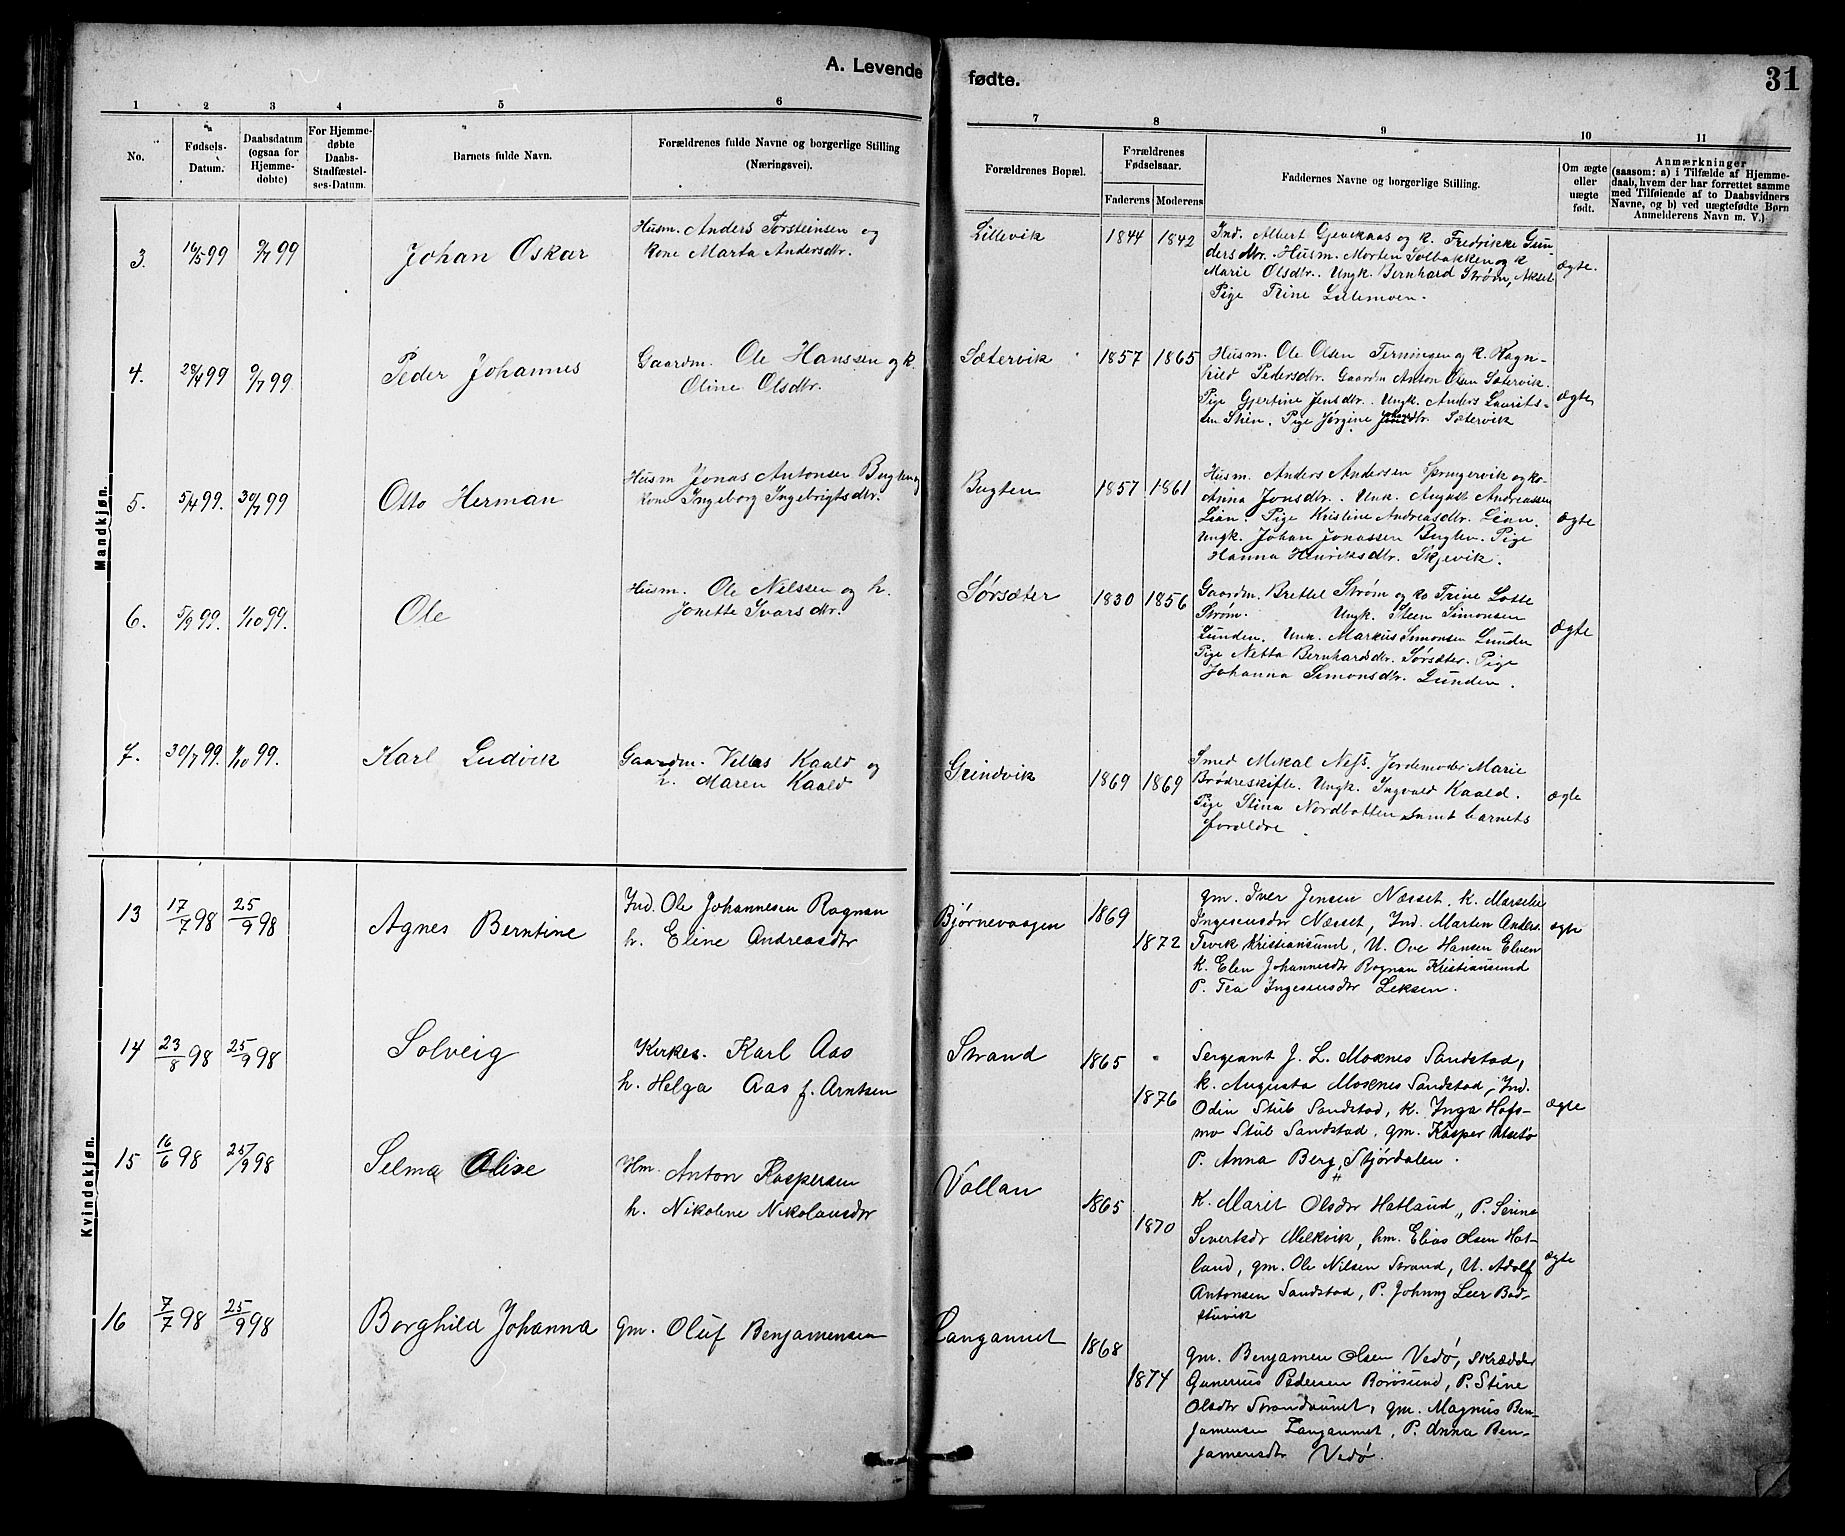 A. Levende fødte.
31
1 2 3 4 5 6 7 8 9 10 11
No.
Fødsels-
Datum.
Daabsdatum
(ogsaa for
Hjemme-
døbte)
For Hjemme-
døbte
Daabs-
Stadfæstel-
ses-Datum.
Barnets fulde Navn.
Forældrenes fulde Navne og borgerlige Stilling
(Næringsvei).
Forældrenes Bopæl.
Forældrenes
Fødselsaar.
Faderens Moderens
Faddernes Navne og borgerlige Stilling.
Om ægte
eller
uægte
født.
Anmærkninger
(saasom: a) i Tilfælde af Hjemme-
daab, hvem der har forrettet samme
med Tilføiende af to Daabsvidners
Navne, og b) ved uægtefødte Børn
Anmelderens Navn m. V.)
Mandkjøn.
3. 16/5 99 9/7 99
Johan Oskar
Husm. Anders Torsteinsen og
kone Marta Andersdtr.
Lillevik
1844 1842
Ind. Albert Gjævkaas og k. Fredrikke Gun-
dersdtr. Husm. Morten Solbakken og k
Marie Olsdtr. Ungk. Bernhard Strøm, Aksel
Pige Trine Lillemoen.
ægte.
4. 28/4 99 9/7 99.
Peder Johannes
Gaardm. Ole Hanssen og k.
Oline Olsdtr.
Sætervik
1857 1865
Husm. Ole Olsen Terningen og k. Ragn-
hild Pedersdtr. Gaardm Anton Olsen Sætervik.
Pige Gjertine Jensdtr. Ungk. Anders Laurits-
sen Stien. Pige Jørgine Sætervik
ægte
5. 5/4 99. 30/7 99
Otto Herman
Husm Jonas Antonsen Bugten og
kone Ingeborg Ingebrigtsdtr.
Bugten
1857 1861
Husm. Anders Andersen Springervik og ko
Anna Jonsdtr. Unk. August Andreassen
Lian. Pige Kristine Andreasdtr. Lian.
Ungk. Johan Jonassen Bugten. Pige
Hanna Henriksdtr. Skjevik.
ægte
6. 5/9 99. 1/10 99.
Ole
Husm. Ole Nilssen og h.
Jonetta Ivarsdtr.
Sørsæter
1830 1856
Gaardm. Brettel Strøm og ko Trine Lotte
Strøm. Ungk. Steen Simonsen
Lunden. Unk. Markus Simonsen Lunden
Pige Netta Bernhardsdtr. Sørsæter. Pige
Johanna Simonsdtr. Lunden.
ægte
7. 30/7 99. 1/10 99.
Karl Ludvik
Gaardm. Kaald og
h. Maren Kaald
Grindvik
1869 1869
Smed Mikal Ness. Jordemoder Marie
Brødreskifte. Ungk. Ingvald Kaald.
Pige Stina Nordbotten samt barnets
forældre.
ægte
Kvindekjøn.
13 17/7 98 25/9 98
Agnes Berntine
Ind. Ole Johannesen Rognan
h. Eline Andreasdtr
Bjørnevaagen
1869
1872
gm. Iver Jensen Næsset. k. Marselie
Ingesensdtr Næsset, Ind. Martin Anders.
Tevik Kristiansund, U. Ove Hansen Elven
k. Elen Johannesdtr Rognan Kristiansund
P. Tea Ingesensdtr Leksen.
ægte
14 23/8 98 25/9 98
Solveig
Kirkes. Karl Aas
h. Helga Aas f. Arntsen
Strand
1865
1876
Sergeant J. L. Moxnes Sandstad,
k. Augusta Moxnes Sandstad, Ind.
Odin Stub Sandstad, k. Inga Hofs-
mo Stub Sandstad, gm. Kasper Ulsetø
P. Anna Berg, Stjørdalen.
ægte
15 16/6 98 25/9 98
Selma Olise
Hm. Anton Kaspersen
h. Nikoline Nikolausdtr
Vollan
1865
1870
k. Marit Olsdtr Hatland, P. Serina
Sivertsdtr Melkvik, hm. Elias Olsen Hat-
land, gm. Ole Nilsen Strand, U. Adolf
Antonsen Sandstad, P. Johnny Leer Bad-
stuvik
ægte
16 7/7 98 25/9 98
Borghild Johanna
gm. Oluf Benjamensen
Langaunet
1868
1874
gm. Benjamen Olsen Vedø, skrædder
Gunerius Pedersen Borøsund, P. Stine
Olsdtr Strandaunet, gm. Magnus Ben-
jamensen Langaunet, P. Anna Ben-
jamensdtr Vedø.